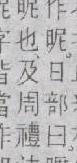 作昵日部曰
昵也及周禮
字皆當作